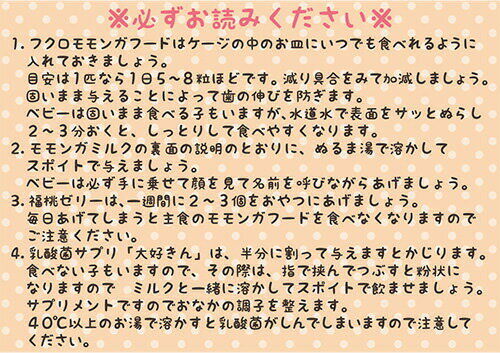 ※必ずお読みください※
1. フクロモモンガフードはケージの中のお皿にいつでも食べれるように
入れておきましょう。
目安は1匹なら1日5～8粒ほどです。減り具合をみて加減しましょう。
固いまま与えることによって歯の伸びを防ぎます。
ベビーは固いまま食べる子もいますが、水道水で表面をサッとぬらし
2～3分おくと、しっとりして食べやすくなります。
2. モモンガミルクの裏面の説明のとおりに、ぬるま湯で溶かして
スポイトで与えましょう。
ベビーは必ず手に乗せて顔を見て名前を呼びながらあげましょう。
3. 福桃ゼリーは、一週間に2～3個をおやつにあげましょう。
毎日あげてしまうと主食のモモンガフードを食べなくなりますので
ご注意ください。
4. 乳酸菌サプリ「大好きん」は、半分に割って与えますとかじります。
食べない子もいますので、その際は、指で挟んでつぶすと粉状に
なりますので　ミルクと一緒に溶かしてスポイトで飲ませましょう。
サプリメントですのでおなかの調子を整えます。
40℃以上のお湯で溶かすと乳酸菌がしんでしまいますので注意して
ください。